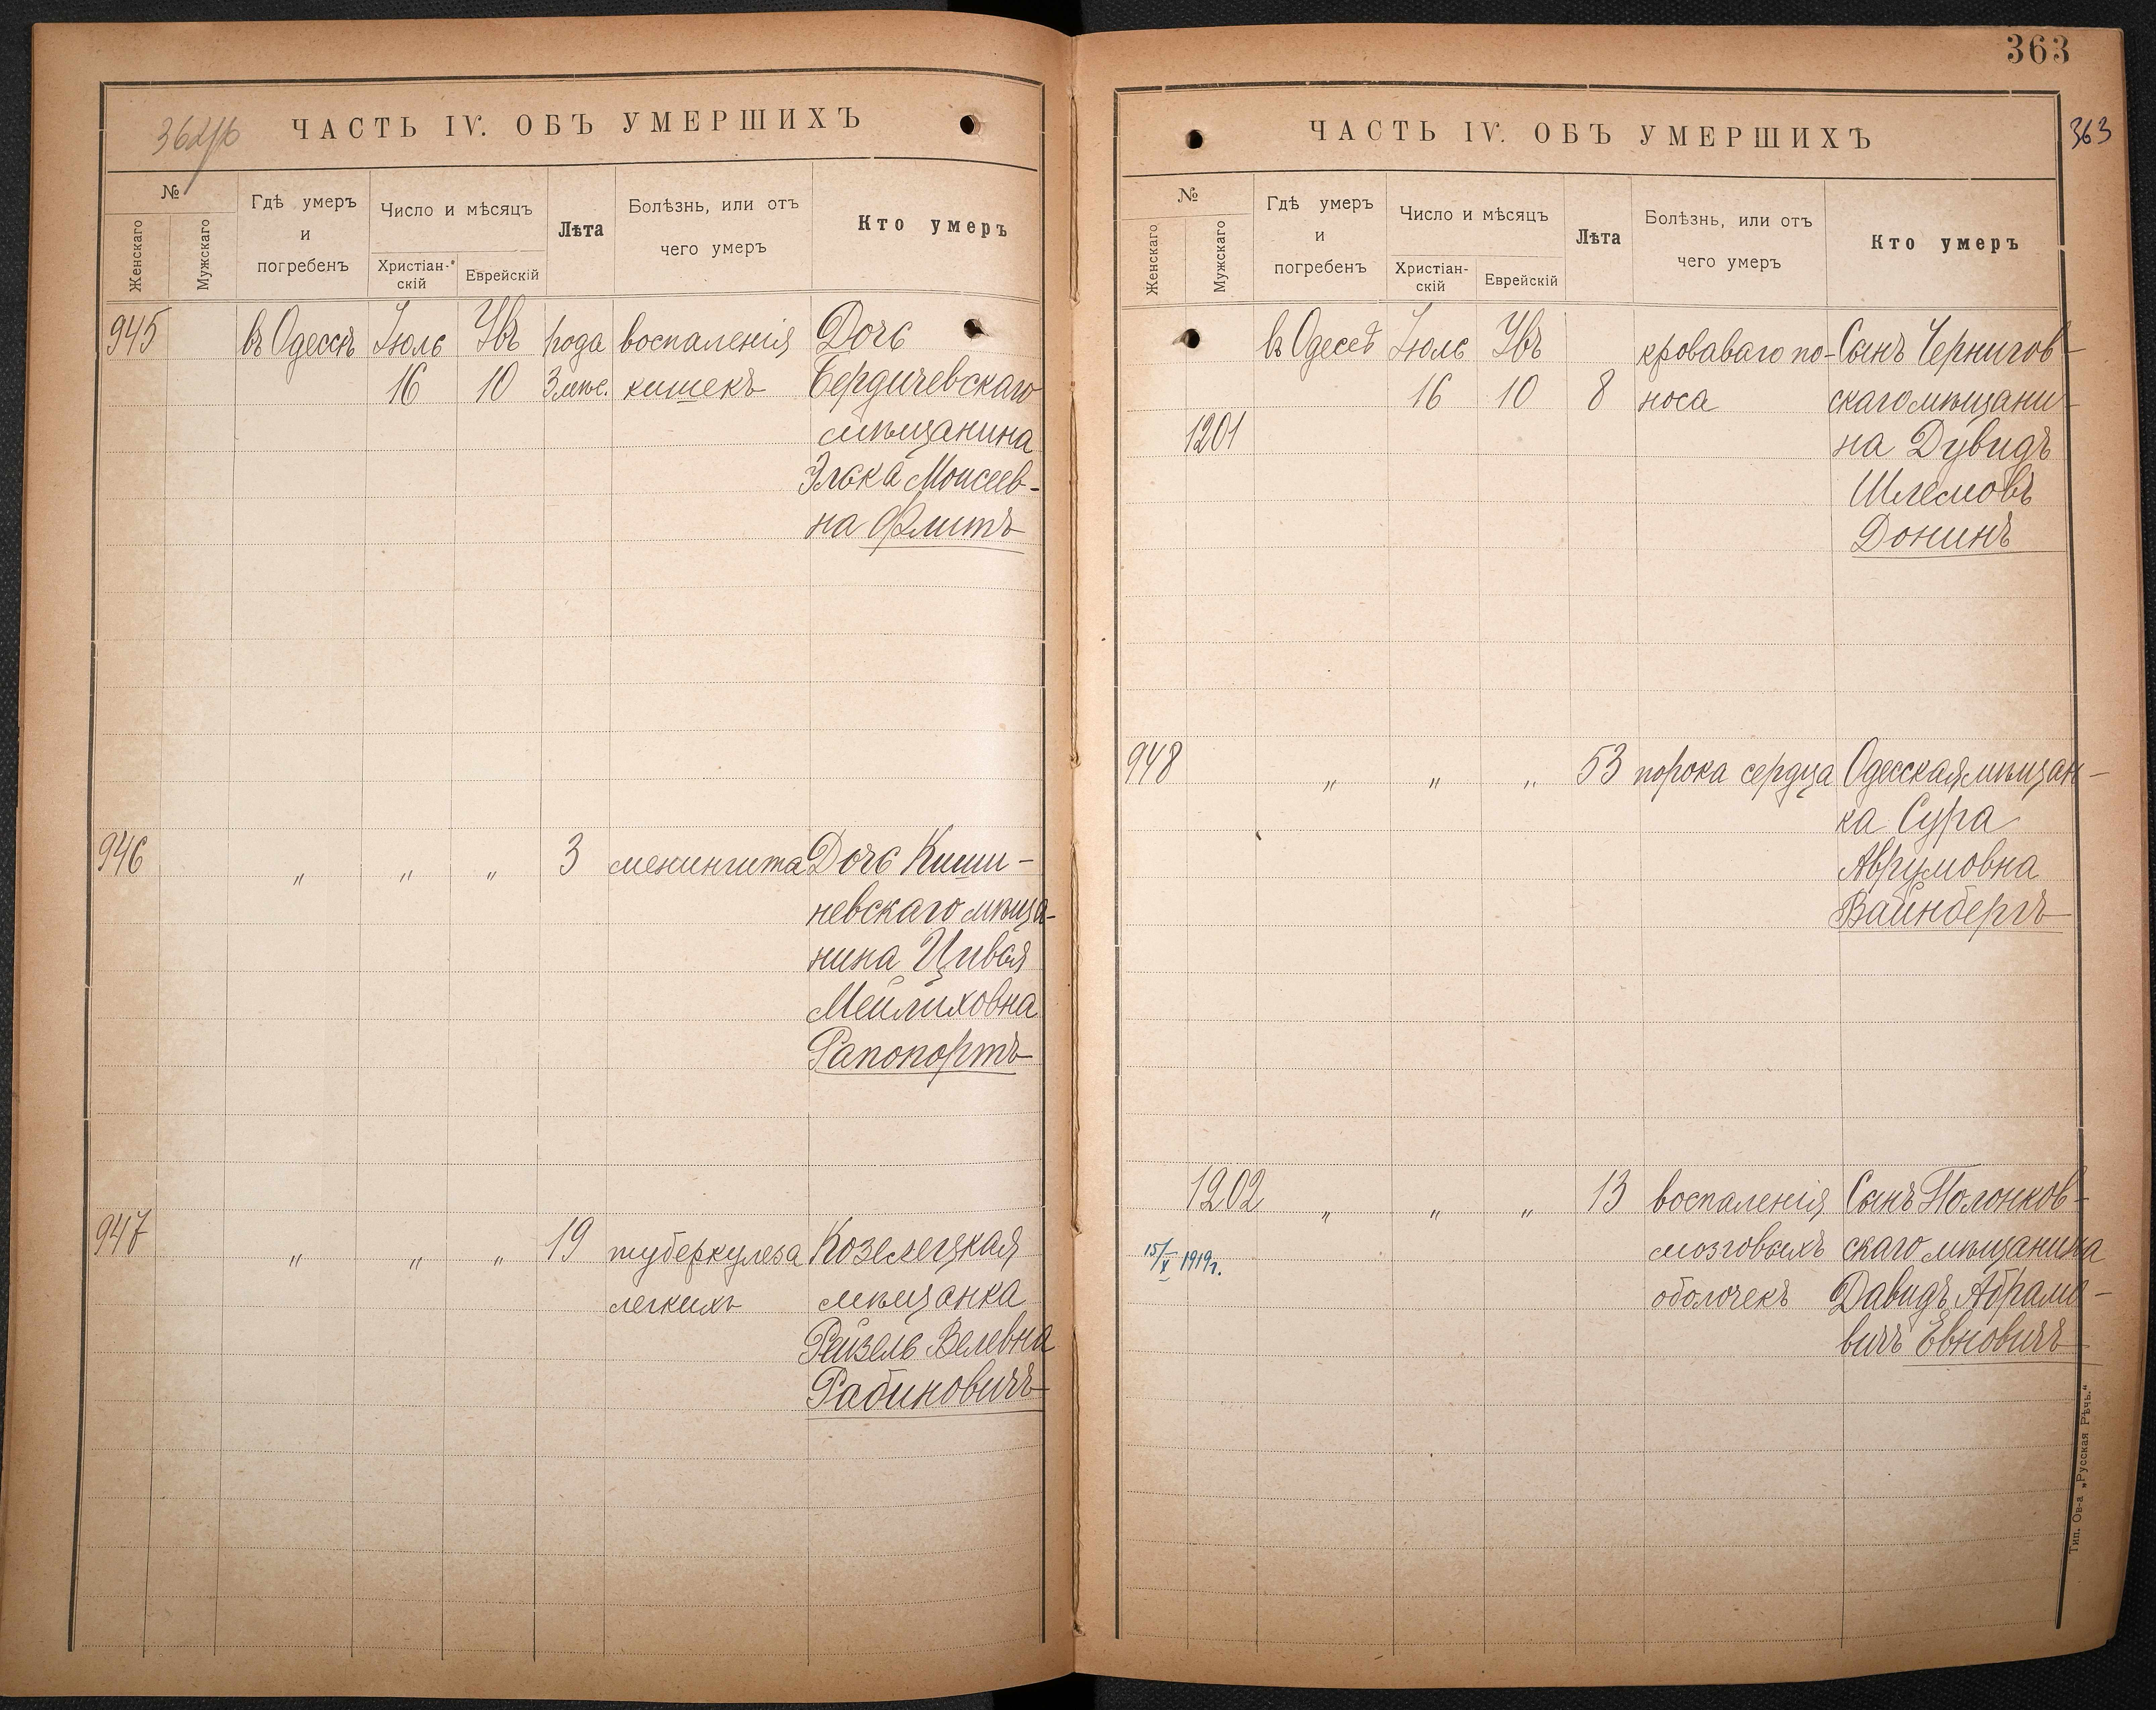 362/об
ЧАСТЬ IV. ОБЪ УМЕРШИХЪ
№
Женскаго
Мужскаго
Гдѣ умеръ
и
погребенъ
Число и мѣсяцъ
Христіан-
скій
Еврейскій
Лѣта
Болѣзнь, или отъ
чего умеръ
Кто умеръ
945 въ Одессѣ Іюль Увъ года воспаленія Дочь
16 10 3 мѣс. кишекъ Бердичевскаго
мѣщанина
Элька Моисеев-
на Флитъ
946 " " " 3 менингита Дочь Киши-
невскаго мѣща-
нина Цивья
Мейлиховна
Рапопортъ
947 " " " 19 туберкулеза Козелецкая
легкихъ мѣщанка
Рейзель Велевна
Рабиновичъ
363
363
ЧАСТЬ IV. ОБЪ УМЕРШИХЪ
№
Женскаго
Мужскаго
Гдѣ умеръ
и
погребенъ
Число и мѣсяцъ
Христіан-
скій
Еврейскій
Лѣта
Болѣзнь, или отъ
чего умеръ
Кто умеръ
въ Одессѣ Іюль Увъ кроваваго по- Сынъ Чернигов-
16 10 8 носа скаго мѣщани-
1201 на Дувидъ
Шлемовъ
Донинъ
948 " " " 53 порока сердца Одесская мѣщан-
ка Сура
Аврумовна
Вайнбергъ
1202 " " " 13 воспаленія Сынъ Полонков-
15/V 1919г. мозговыхъ скаго мѣщанина
оболочекъ Давидъ Абрамо-
вичъ Евновичъ
Тип. Ов-а „Русская Рѣчь."